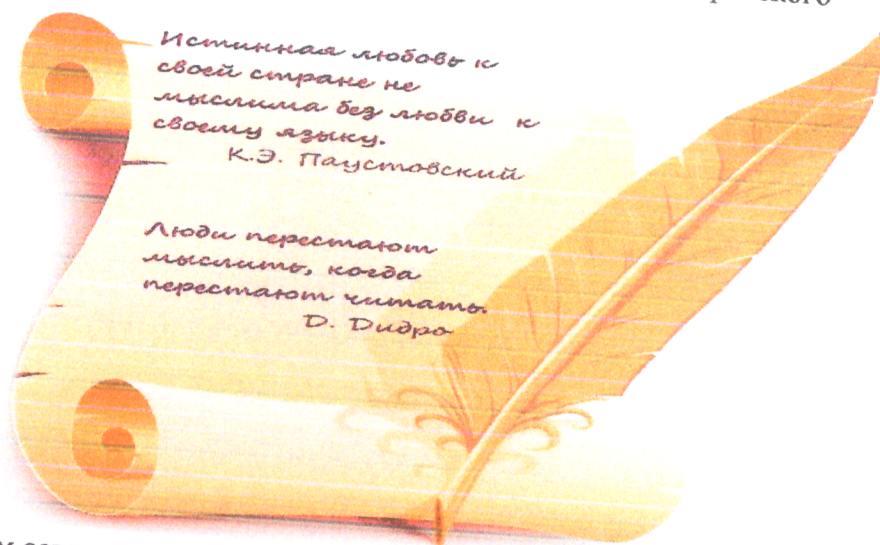 Истинная любовь к
своей стране не
мыслима без любви к
своему языку.
К.Э. Паустовский
Люди перестают
мыслить, когда
перестают читать.
D. Дидро